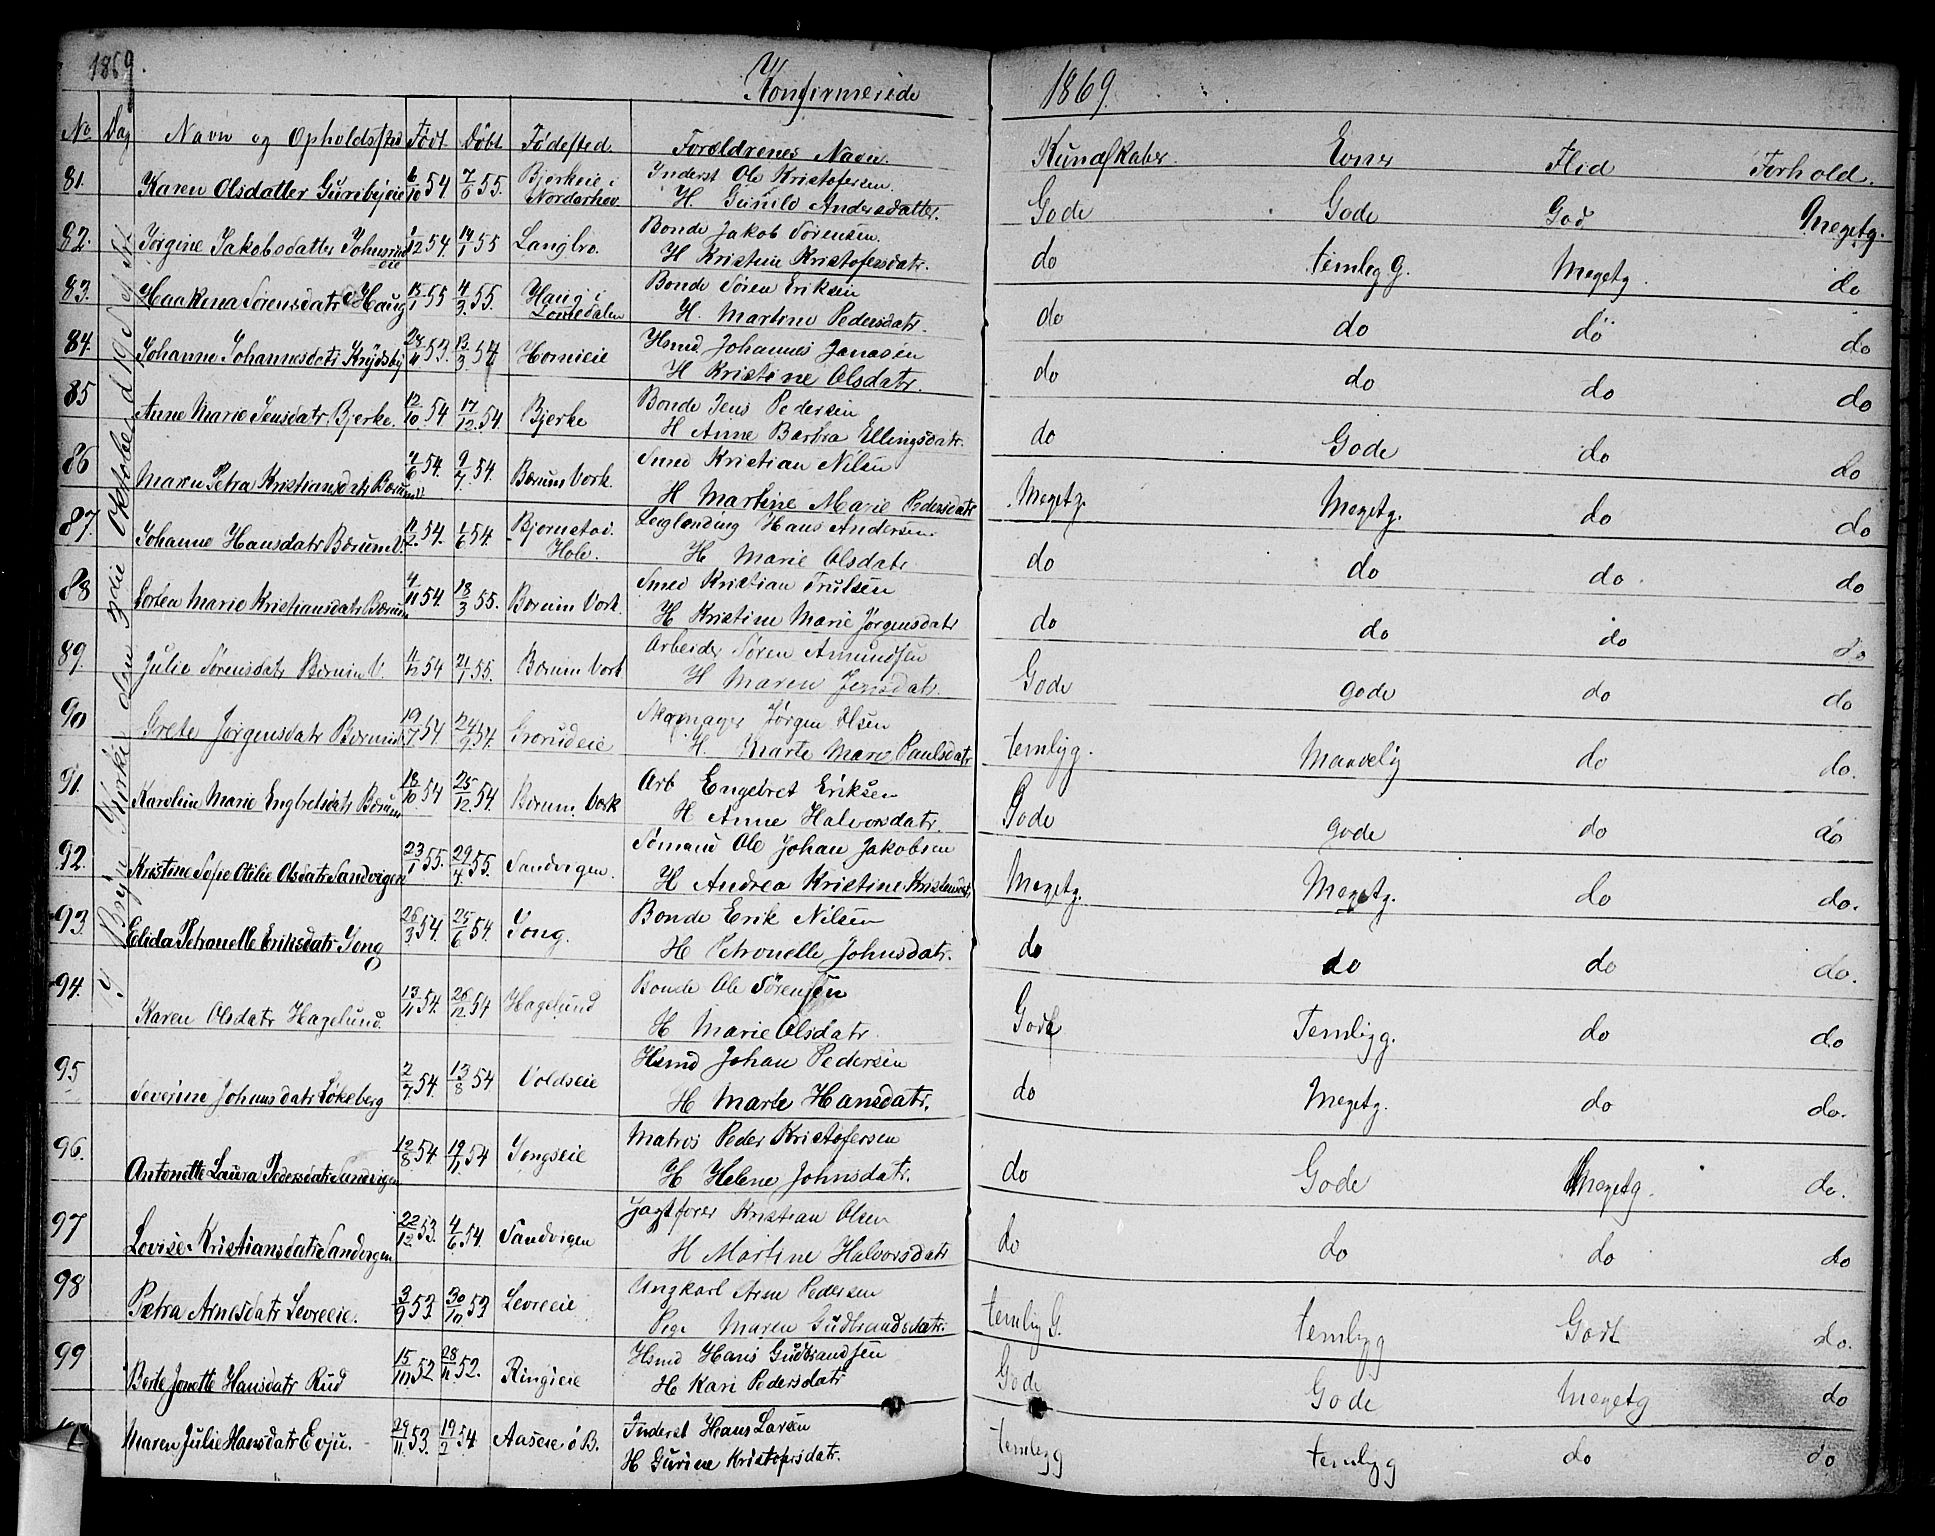 1869.
Konfirmerede
1869.
No Dag Navn og Opholdssted Født Døbt Fødested. Forældrenes Navn. Kundskaber. Evner Flid Forhold.
81. Karen Olsdatter Guribyeie 6/10 54 7/6 55. Bjerkeie i Norderhov. Inderst Ole Kristofersen. Gode Gode God Megetg.
H Gunild Andersdatter.
82. Jørgine Jakobsdatter Johnsrud eie 1/12 54 14/1 55 Langbro. Bonde Jakob Sørensen. do temleg g. Megetg. do
H Kristine Kristofersdatr.
83. Haakena Sørensdatr Haug 15/1 55 4/3 55. Haug i Lommedalen Bonde Søren Eriksen do do do do
H. Martine Pedersdatr.
84. Johanne Johannesdatr Krydsby 28/11 53 13/3 54 Hornieie Hsmd. Johannes Jonasen do do do do
H Kristine Olsdatr.
85 Anne Marie Jensdatr Bjerke. 12/10 54 17/12 54. Bjerke Bonde Jens Pedersen do Gode do do
H Anne Barbra Ellingsdatr.
86 Maren Petra Kristiansdatr Bærum V 4/6 54. 9/7 54. Bærum Værk. Smed Kristian Nilsen Megetg. Megetg. do do
H Martine Marie Pedersdatr
87. Johanne Hansdatr Bærum V. 11/2 54. 1/6 54. Bjørnstad. Hole. Leiglending Hans Andersen do do do do
H Marie Olsdatr
88 Lovten Marie Kristiansdatr Bærum 4/11 54. 18/3 55. Bærum Værk. Smed Kristian Trulsen do do do do
H Kristine Marie Jørgensdatr
89. Julie Sørensdatr Bærum V. 4/12 54 21/1 55. Bærum Værk Arbeider Søren Amundsen Gode gode do do
H Maren Jensdatr.
90 Grete Jørgensdatr Bærum V 19/7 54. 24/9 54. Grorudeie Skomager Jørgen Olsen temlig g. Maadelig do do.
H. Marte Marie Paulsdatr
91. Karoline Marie Engbretsdatr Bærum 18/10 54 25/12 54. Bærum Værk Arb Engebret Eriksen Gode gode do do
H Anne Halvorsdatr.
92. Kristine Sofie Otilie Olsdatr Sandvigen 23/1 55. 29/4 55. Sandvigen. Sømand Ole Johan Jakobsen Megetg. Megetg. do do.
H Andrea Kristine Kristensdatr
93. Elida Petronelle Eriksdatr Jong 26/3 54. 25/6 54. Jong. Bonde Erik Nilsen do do do do.
H Petronelle Johnsdatr.
94. Karen Olsdatr Hagelund. 13/11 54. 26/12 54 Hagelund Bonde Ole Sørensen Gode Temlig g. do do
H Marie Olsdatr.
95 Severine Johansdatr Løkeberg 2/7 54. 13/8 54 Voldseie Hsmd Johan Pedersen do Megetg. do do.
H Marte Hansdatr.
96. Antonette Laura Pedersdatr Sandvigen 12/8 54. 19/11 54 Jongseie Matros Peder Kristofersen do Gode Megetg. do.
H Helene Johnsdatr.
97 Lovise Kristiansdatr Sandvigen 22/12 53. 4/6 54. Sandvigen Jagtfører Kristian Olsen do do do do
H Martine Halvorsdatr
98 Petra Arnesdatr Levreeie. 3/9 53 30/10 53 Levreeie Ungkarl Arne Pedersen temlig G. temlig g Godt do.
Pige Maren Gudbrandsdatr.
99 Berte Jonette Hansdatr Rud 15/10 52 28/11 52. Ringieie Hsmd Hans Gudbrandsen Gode Gode Megetg do
H Kari Pedersdatr
Maren Julie Hansdatr Evju. 29/11 53. 19/2 54 Aaseie ø B. Inderst Hans Larsen temlig g temlig g do do
H Gurine Kristofersdatr.
I Bryn Kirke den 3die Oktober